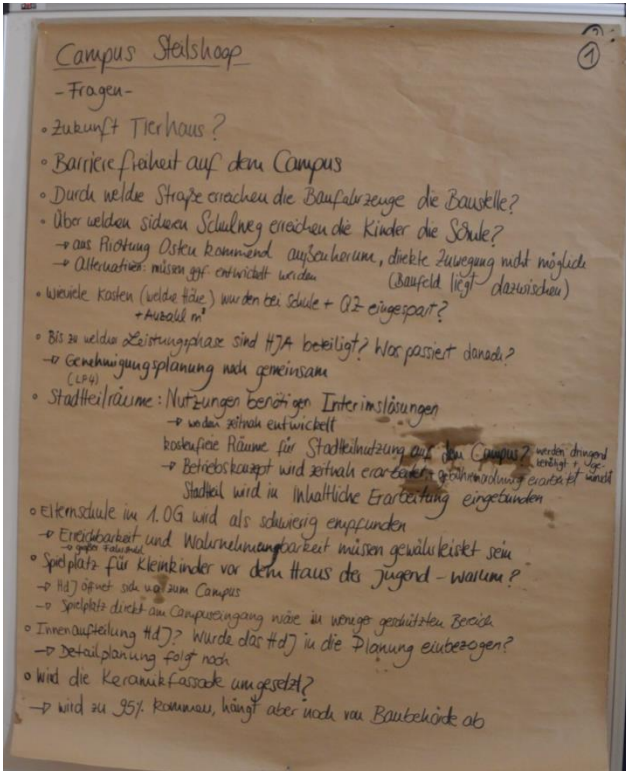 1
Campus Steilshoop
- Fragen -
• Zukunft Tierhaus?
• Barrierefreiheit auf dem Campus
• Durch welche Straße erreichen die Baufahrzeuge die Baustelle?
• Über welchen sicheren Schulweg erreichen die Kinder die Schule?
→ aus Richtung Osten kommend außenherum, direkte Zuwegung nicht möglich
→ Alternativen müssen ggf entwickelt werden (Baufeld liegt dazwischen)
• Wieviele Kosten (welche Höhe) wurden bei Schule + QZ eingespart?
+ Anzahl m²
• Bis zu welcher Leistungsphase sind HJA beteiligt? Was passiert danach?
→ Genehmigungsplanung noch gemeinsam
(LP4)
• Stadtteilräume: Nutzungen benötigen Interimslösungen
→ werden zeitnah entwickelt
kostenfreie Räume für Stadtteilnutzung auf dem Campus? werden dringend
benötigt +
→ Betriebskonzept wird zeitnah erarbeitet + erarbeitet
Stadtteil wird in Inhaltliche Erarbeitung eingebunden
• Elternschule im 1.OG wird als schwierig empfunden
→ Erreichbarkeit und Wahrnehmungbarkeit müssen gewährleistet sein
→ großer Fahrstuhl
• Spielplatz für Kleinkinder vor dem Haus der Jugend - warum?
→ HdJ öffnet sich zum Campus
→ Spielplatz direkt am Campuseingang wäre in weniger geschützten Bereich
• Innenaufteilung HdJ? Wurde das HdJ in die Planung einbezogen?
→ Detailplanung folgt noch
• Wird die Keramikfassade umgesetzt?
→ wird zu 95% kommen, hängt aber noch von Baubehörde ab